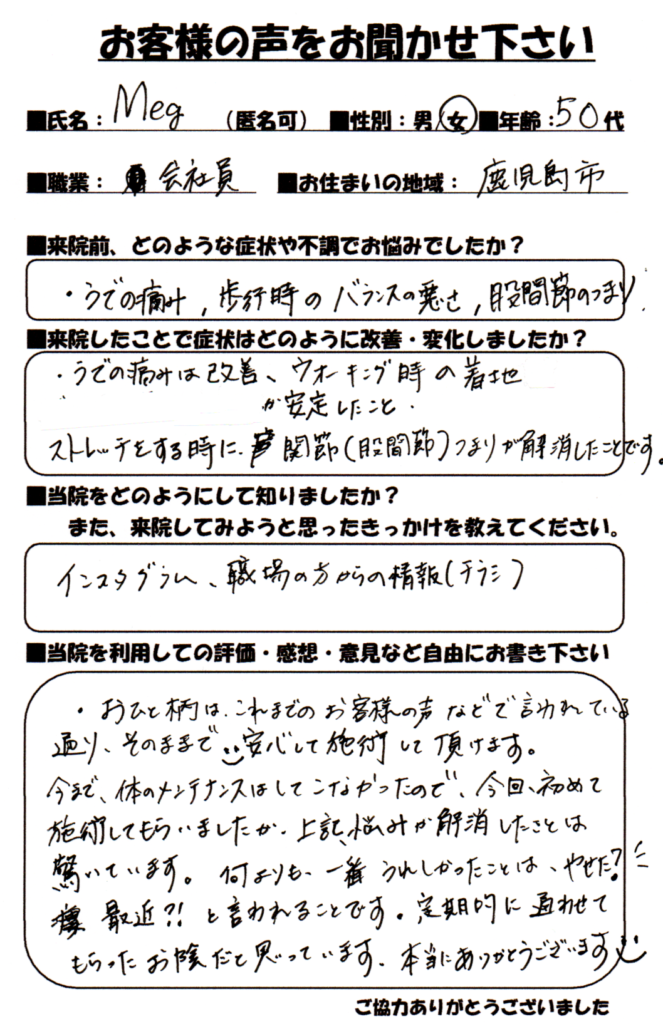 お客様の声をお聞かせ下さい
■氏名：Meg （匿名可） ■性別：男 女 ■年齢：50代
■職業： 会社員 ■お住まいの地域： 鹿児島市
■来院前、どのような症状や不調でお悩みでしたか？
・うでの痛み，歩行時のバランスの悪さ，股間節のつまり
■来院したことで症状はどのように改善・変化しましたか？
・うでの痛みは改善、ウオーキング時の着地
が安定したこと．
ストレッチをする時に、関節（股間節）つまりが解消したことです。
■当院をどのようにして知りましたか？
また、来院してみようと思ったきっかけを教えてください。
インスタグラム、職場の方からの情報（チラシ）
■当院を利用しての評価・感想・意見など自由にお書き下さい
・おひと柄は、これまでのお客様の声などで言われている
通り、そのままで 安心して施術して頂けます。
今まで、体のメンテナンスはしてこなかったので、今回、初めて
施術してもらいましたが、上記、悩みが解消したことは
驚いています。何よりも、一番うれしかったことは、やせた？
最近？！と言われることです。定期的に通わせて
もらったお陰だと思っています、本当にありがとうございます
ご協力ありがとうございました